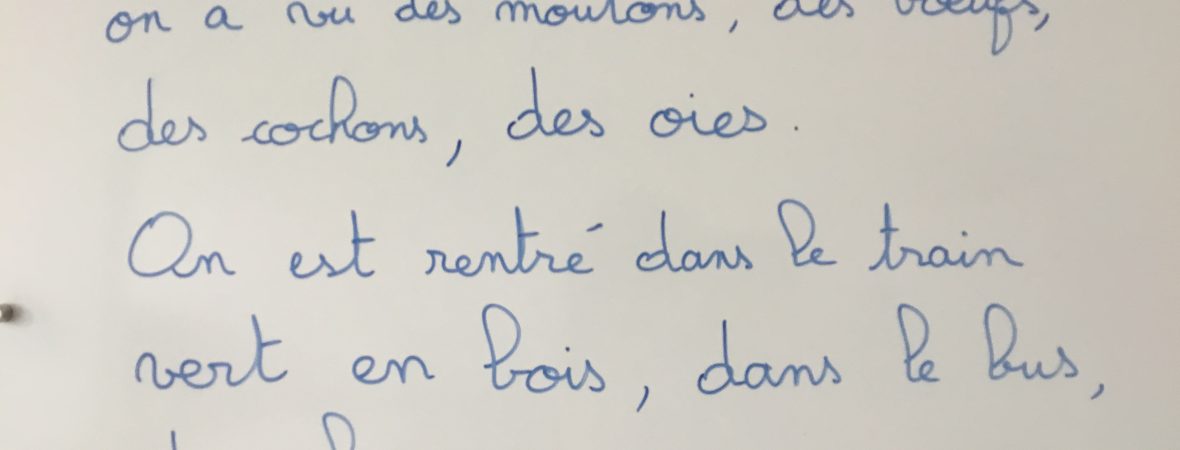 on a vu des moutons, des bœufs,
des cochons, des oies.
On est rentré dans le train
vert en bois, dans le bus,